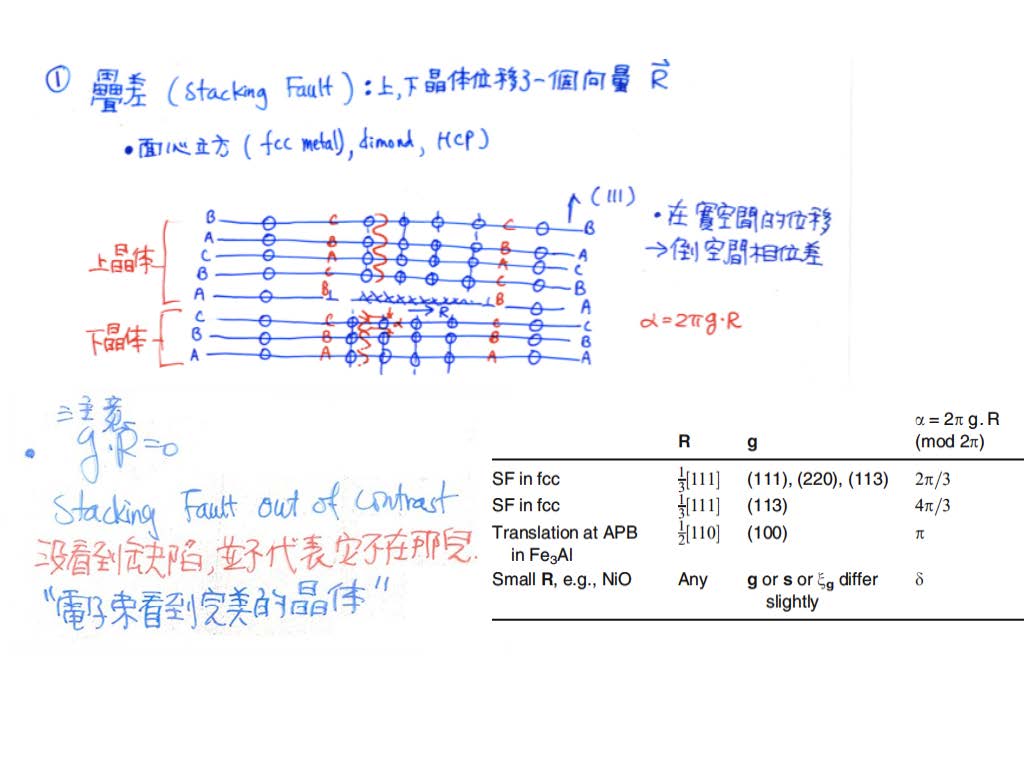 ① 疊差 (Stacking Fault): 上,下晶体位移了一個向量 R
• 面心立方 (fcc metal), dimond, HCP)
(111)
B C C B
A B B A
C A A C
B C C B
A B B A
R
C C α C C
B B B B
A A A A
上晶体
下晶体
• 在實空間的位移
→倒空間相位差
α=2πg·R
注意
• g·R=0
Stacking Fault out of contrast
没看到缺陷,並不代表它不在那兒.
"電子束看到完美的晶体"
α = 2π g . R
R g (mod 2π)
SF in fcc 1/3[111] (111), (220), (113) 2π/3
SF in fcc 1/3[111] (113) 4π/3
Translation at APB 1/2[110] (100) π
in Fe₃Al
Small R, e.g., NiO Any g or s or ξg differ δ
slightly